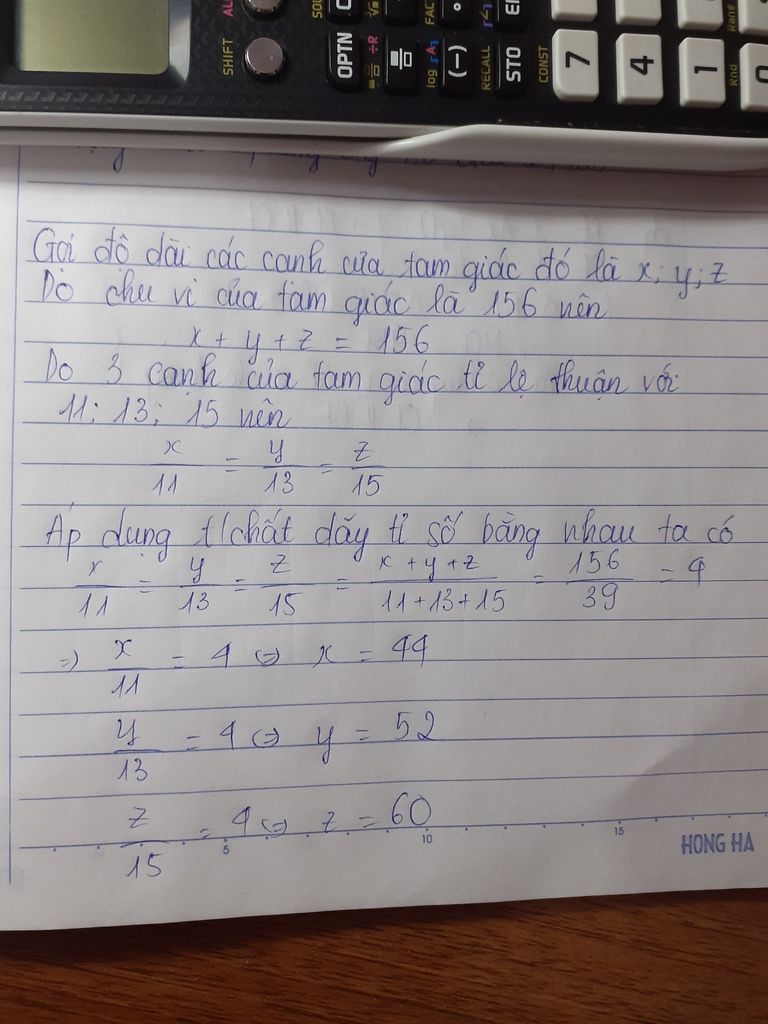 SHIFT
OPTN
(−)
STO
RECALL
CONST
7
4
1
0
Rnd
Gọi độ dài các cạnh của tam giác đó là x; y; z
Do chu vi của tam giác là 156 nên
x + y + z = 156
Do 3 cạnh của tam giác tỉ lệ thuận với
11; 13; 15 nên
x/11 = y/13 = z/15
Áp dụng t/chất dãy tỉ số bằng nhau ta có
x/11 = y/13 = z/15 = x+y+z/11+13+15 = 156/39 = 4
=> x/11 = 4 <=> x = 44
y/13 = 4 <=> y = 52
z/15 = 4 <=> z = 60
5 10 15
HONG HA